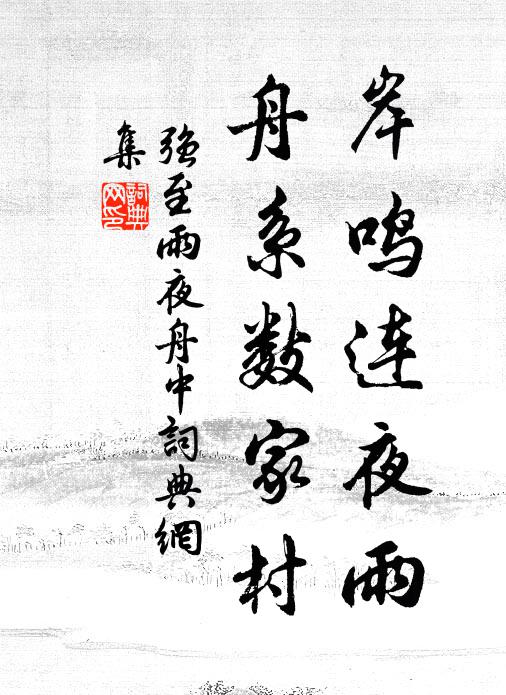 岸鸣连夜雨
舟系数家村
强至雨夜舟中詞典網
集
詞典
网印